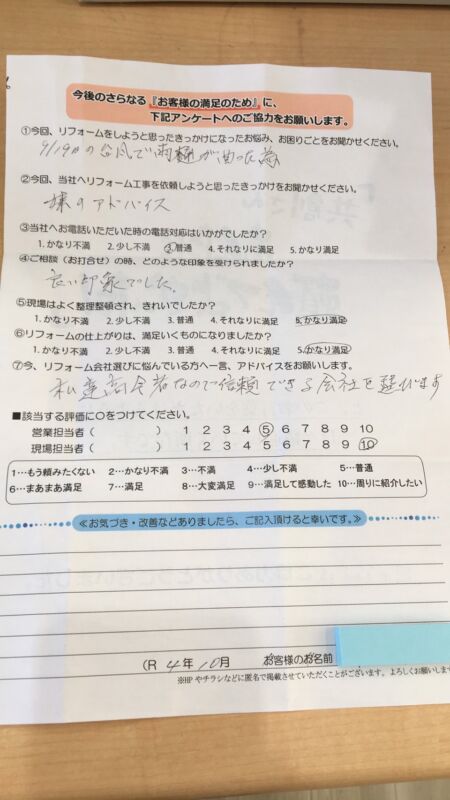 今後のさらなる『お客様の満足のため』に、
下記アンケートへのご協力をお願いします。
①今回、リフォームをしようと思ったきっかけになったお悩み、お困りごとをお聞かせください。
9/19日の台風で雨樋が曲った為
②今回、当社へリフォーム工事を依頼しようと思ったきっかけをお聞かせください。
嫁のアドバイス
③当社へお電話いただいた時の電話対応はいかがでしたか?
1. かなり不満 2. 少し不満 3. 普通 4. それなりに満足 5. かなり満足
④ご相談(お打合せ)の時、どのような印象を受けられましたか?
良い印象でした。
⑤現場はよく整理整頓され、きれいでしたか?
1. かなり不満 2. 少し不満 3. 普通 4. それなりに満足 5. かなり満足
⑥リフォームの仕上がりは、満足いくものになりましたか?
1. かなり不満 2. 少し不満 3. 普通 4. それなりに満足 5. かなり満足
⑦今、リフォーム会社選びに悩んでいる方へ一言、アドバイスをお願いします。
私達高令者なので信頼できる会社を選びます
■該当する評価に○をつけてください。
営業担当者( ) 1 2 3 4 5 6 7 8 9 10
現場担当者( ) 1 2 3 4 5 6 7 8 9 10
1…もう頼みたくない 2…かなり不満 3…不満 4…少し不満 5…普通
6…まあまあ満足 7…満足 8…大変満足 9…満足して感動した 10…周りに紹介したい
≪お気づき・改善などありましたら、ご記入頂けると幸いです。≫
(R 4年10月 お客様のお名前
※HPやチラシなどに匿名で掲載させていただくことがございます。よろしくお願いしま